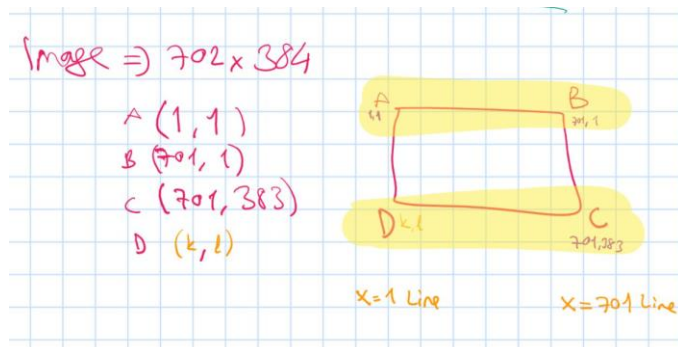 Image => 702 x 384
A (1,1)
B (701, 1)
C (701, 383)
D (k, l)
A
1,1
B
701, 1
D k,l
C
701,383
x=1 Line
x=701 Line